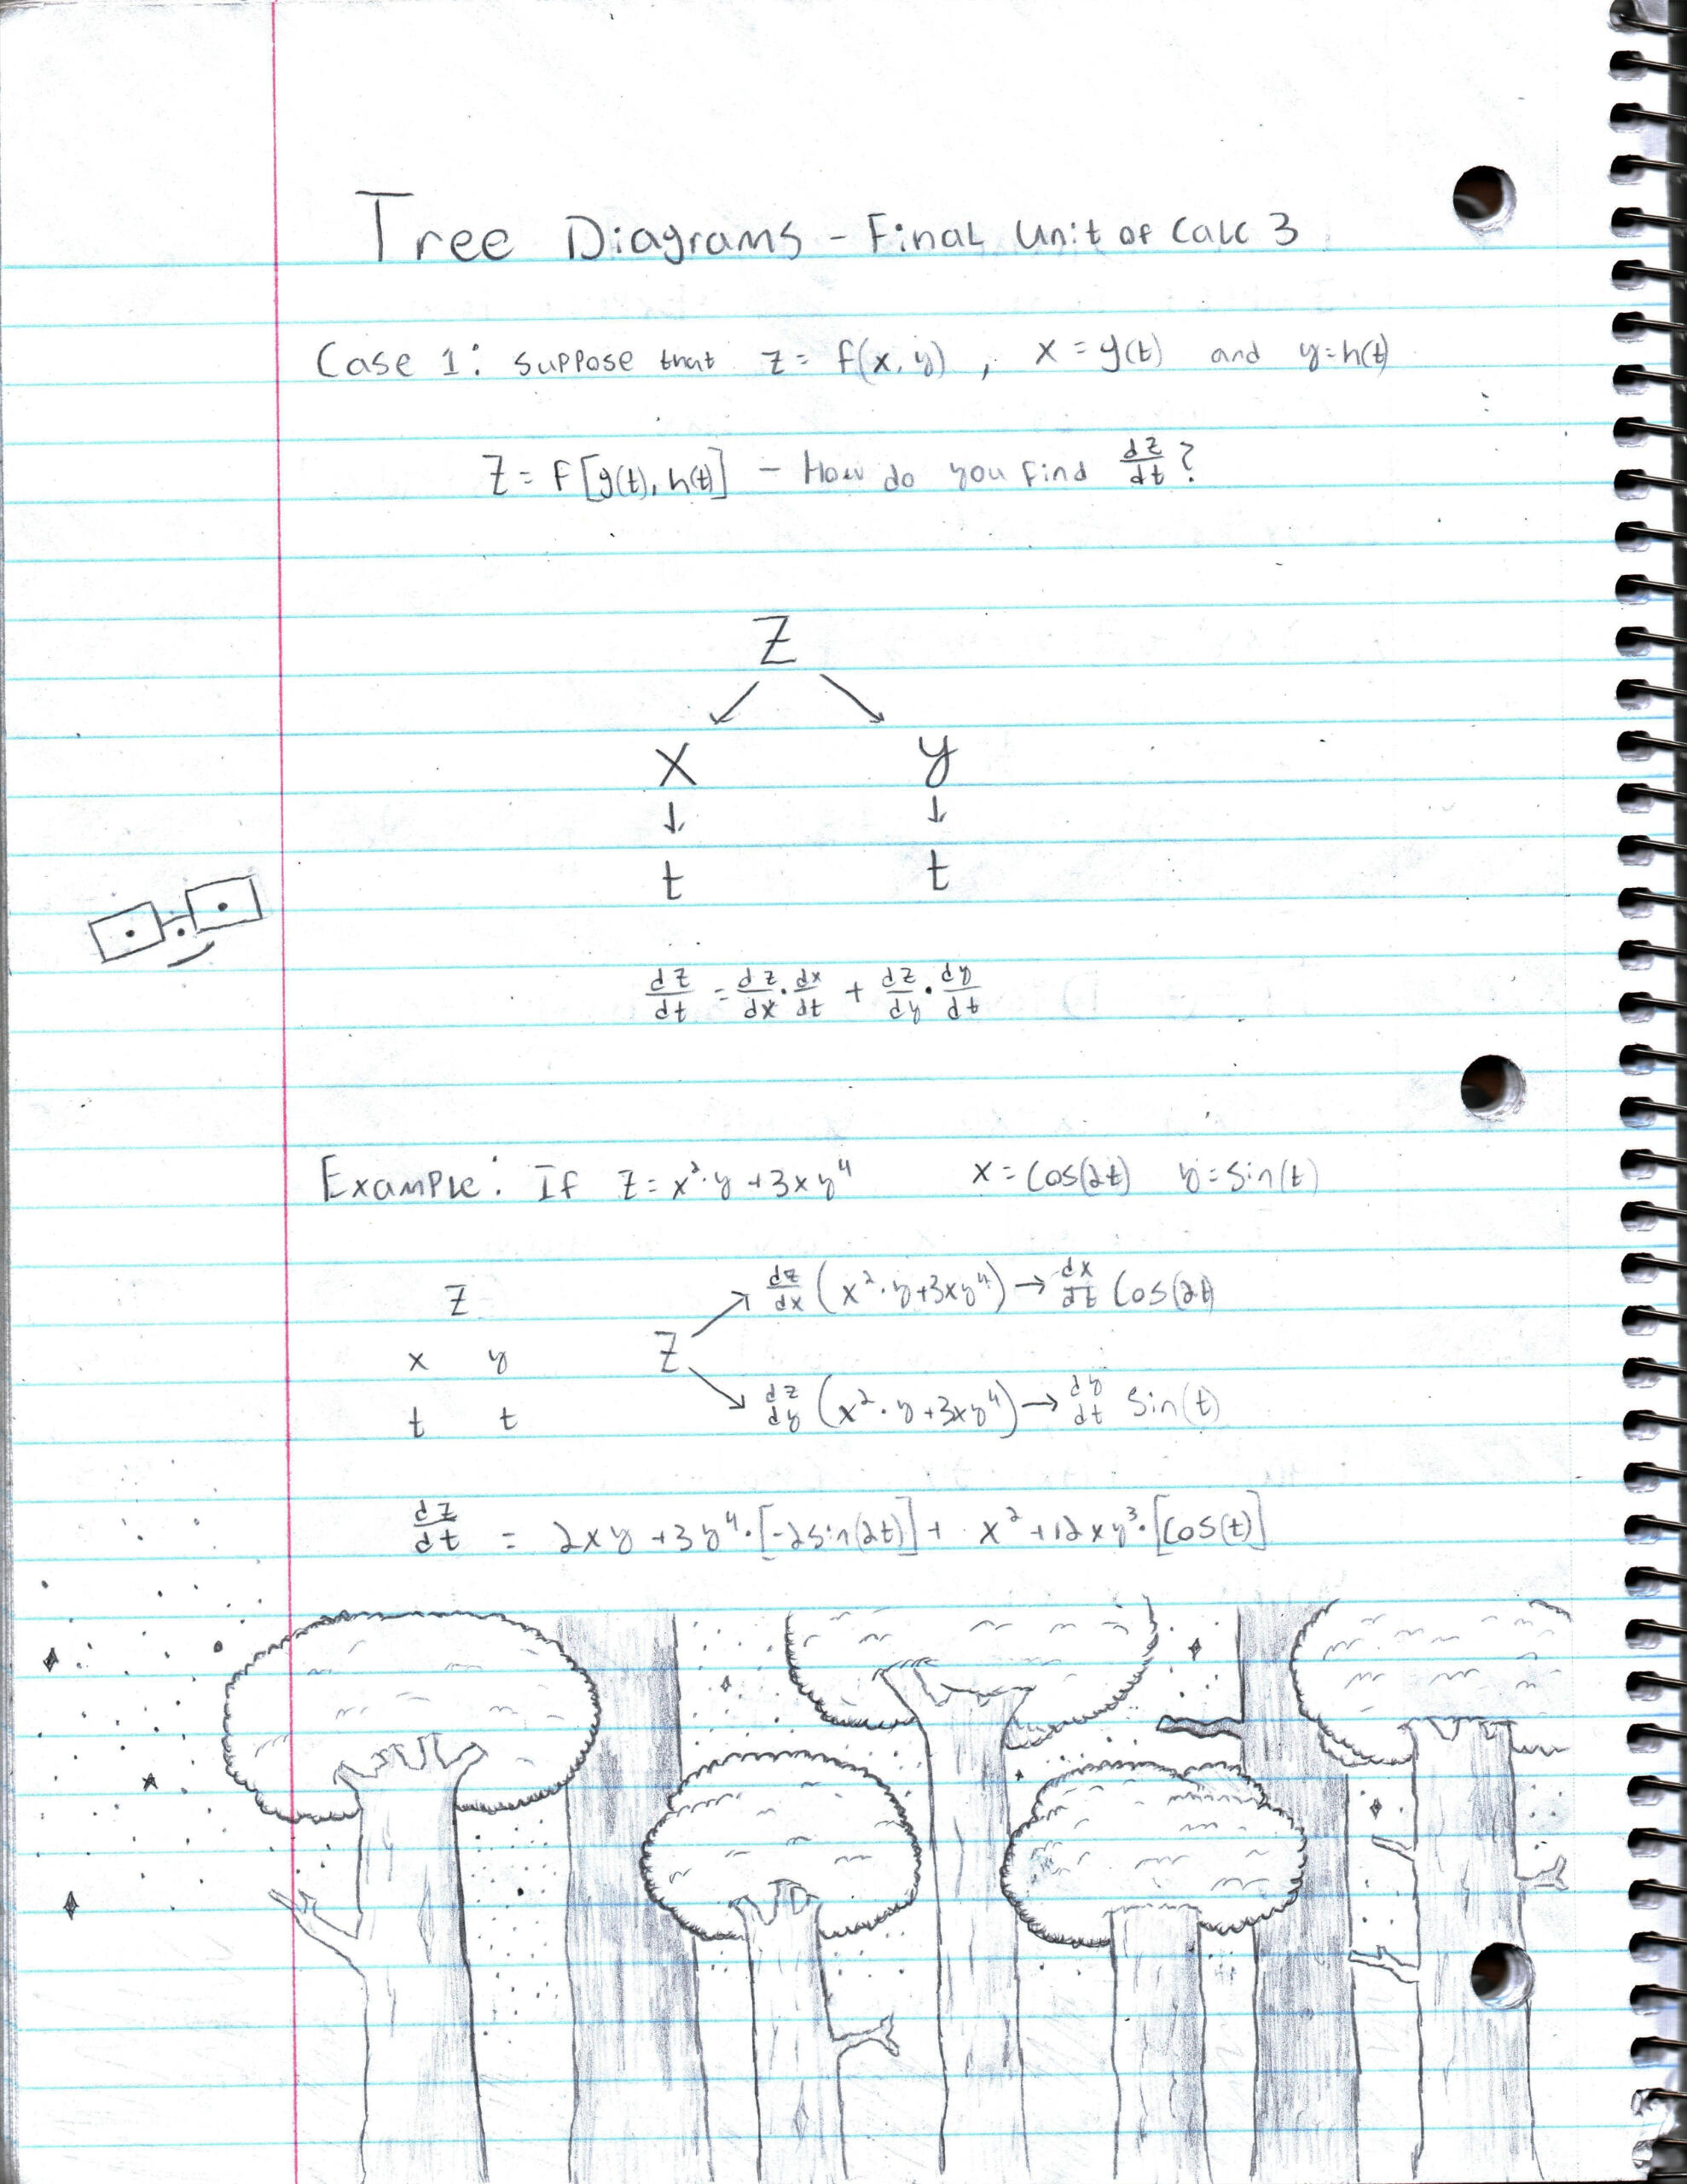 Tree Diagrams - Final Unit of Calc 3
Case 1: Suppose that z = f(x, y), x = g(t) and y = h(t)
Z = F[g(t), h(t)] - How do you find dz/dt?
Z
x y
t t
dz/dt = dz/dx · dx/dt + dz/dy · dy/dt
Example: If z = x²·y + 3xy⁴ x = cos(2t) y = sin(t)
Z dz/dx (x²·y + 3xy⁴) → dx/dt cos(2t)
x y Z
t t dz/dy (x²·y + 3xy⁴) → dy/dt sin(t)
dz/dt = 2xy + 3y⁴·[-2sin(2t)] + x² + 12xy³·[cos(t)]